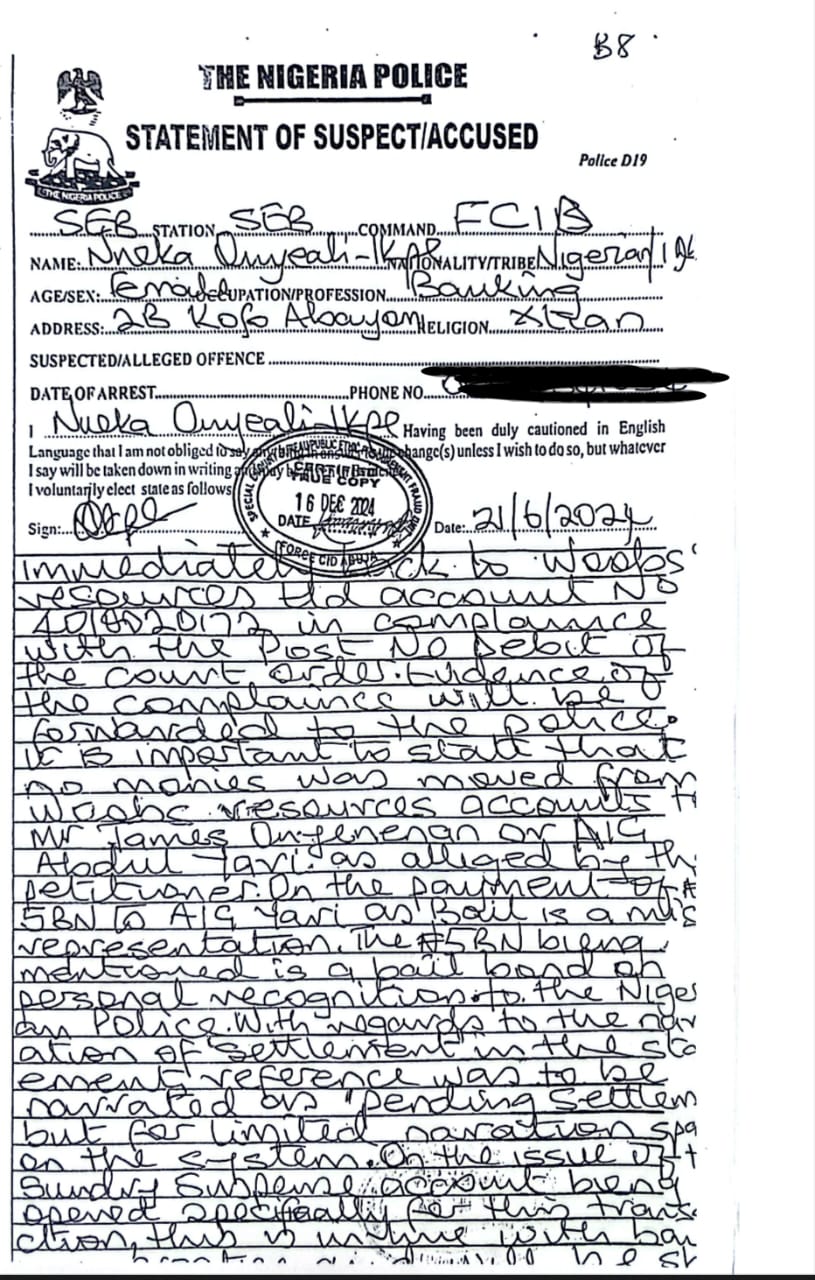 B8
THE NIGERIA POLICE
STATEMENT OF SUSPECT/ACCUSED
Police D19
THE NIGERIA POLICE
SEB STATION SEB COMMAND FCIB
NAME: Nneka Onyeali-Ikpe NATIONALITY/TRIBE Nigerian/
AGE/SEX: female OCCUPATION/PROFESSION Banking
ADDRESS: 2B Kofo Abayomi RELIGION Xtian
SUSPECTED/ALLEGED OFFENCE
DATE OF ARREST PHONE NO.
I Nneka Onyeali-Ikpe Having been duly cautioned in English
Language that I am not obliged to say change(s) unless I wish to do so, but whatever
I say will be taken down in writing
I voluntarily elect state as follows
CERTIFIED
TRUE COPY
16 DEC 2024
DATE
FORCE CID ABUJA
Sign: Date: 21/6/2024
immediately back to
resources Ltd account No
in complaince
with the Post No Debit of
the court order. Evidence of
the complaince will be
forwarded to the police.
it is important to state that
no monies was moved from
resources accounts t
Mr James or AIG
Abdul Yari as alleged by th
petitioner. On the payment of #
5BN to AIG Yari as Bail is a mis
representation. The #5BN being
mentioned is a bail bond on
personal recognition to the Niger
an Police. With regards to the nar
ation of settlement in the sta
ement reference was to be
narrated as "pending settlem
but for limited naration spa
on the system. On the issue of t
Sundry Suspense account being
opened specifically for this trans
ction, this is untrue with ban